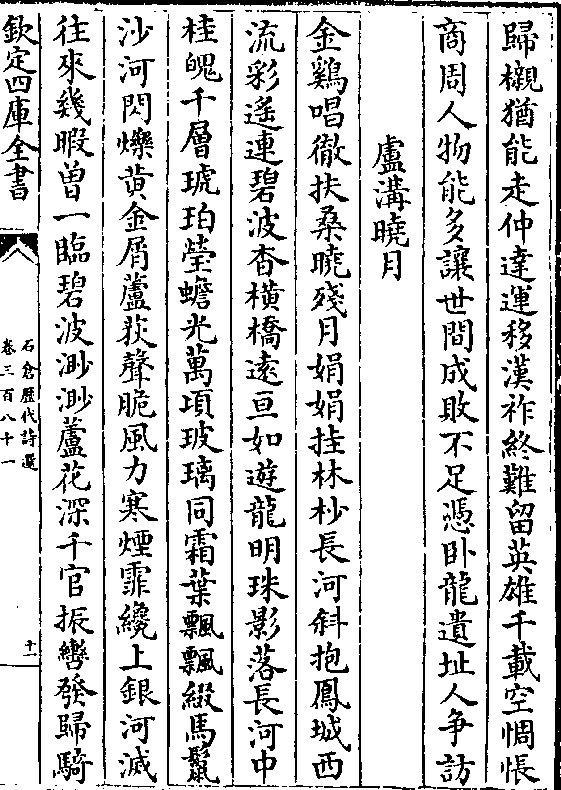 歸櫬猶能走仲達運移漢祚終難留英雄千載空惆悵
商周人物能多讓世間成敗不足憑卧龍遺址人争訪
盧溝曉月
金鷄唱徹扶桑曉殘月娟娟挂林杪長河斜抱鳳城西
流彩遙連碧波杳橫橋遠亘如遊龍明珠影落長河中
桂魄千層琥珀瑩蟾光萬項玻璃同霜葉飄飄綴馬鬛
沙河閃爍黄金屑蘆荻聲脆風力寒煙霏纔上銀河滅
往來幾暇曽一臨碧波渺渺蘆花深千官振轡發歸騎
欽定四庫全書
石倉歷代詩選
卷三百八十一
十一